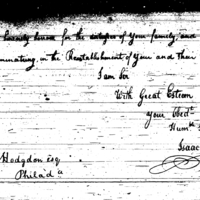 house for the of your family, and
in the Reestablishment of your and Them
I am Sir
With Great Esteem
your Obedt
Humle
Isaac
Hodgdon Esq
Philada